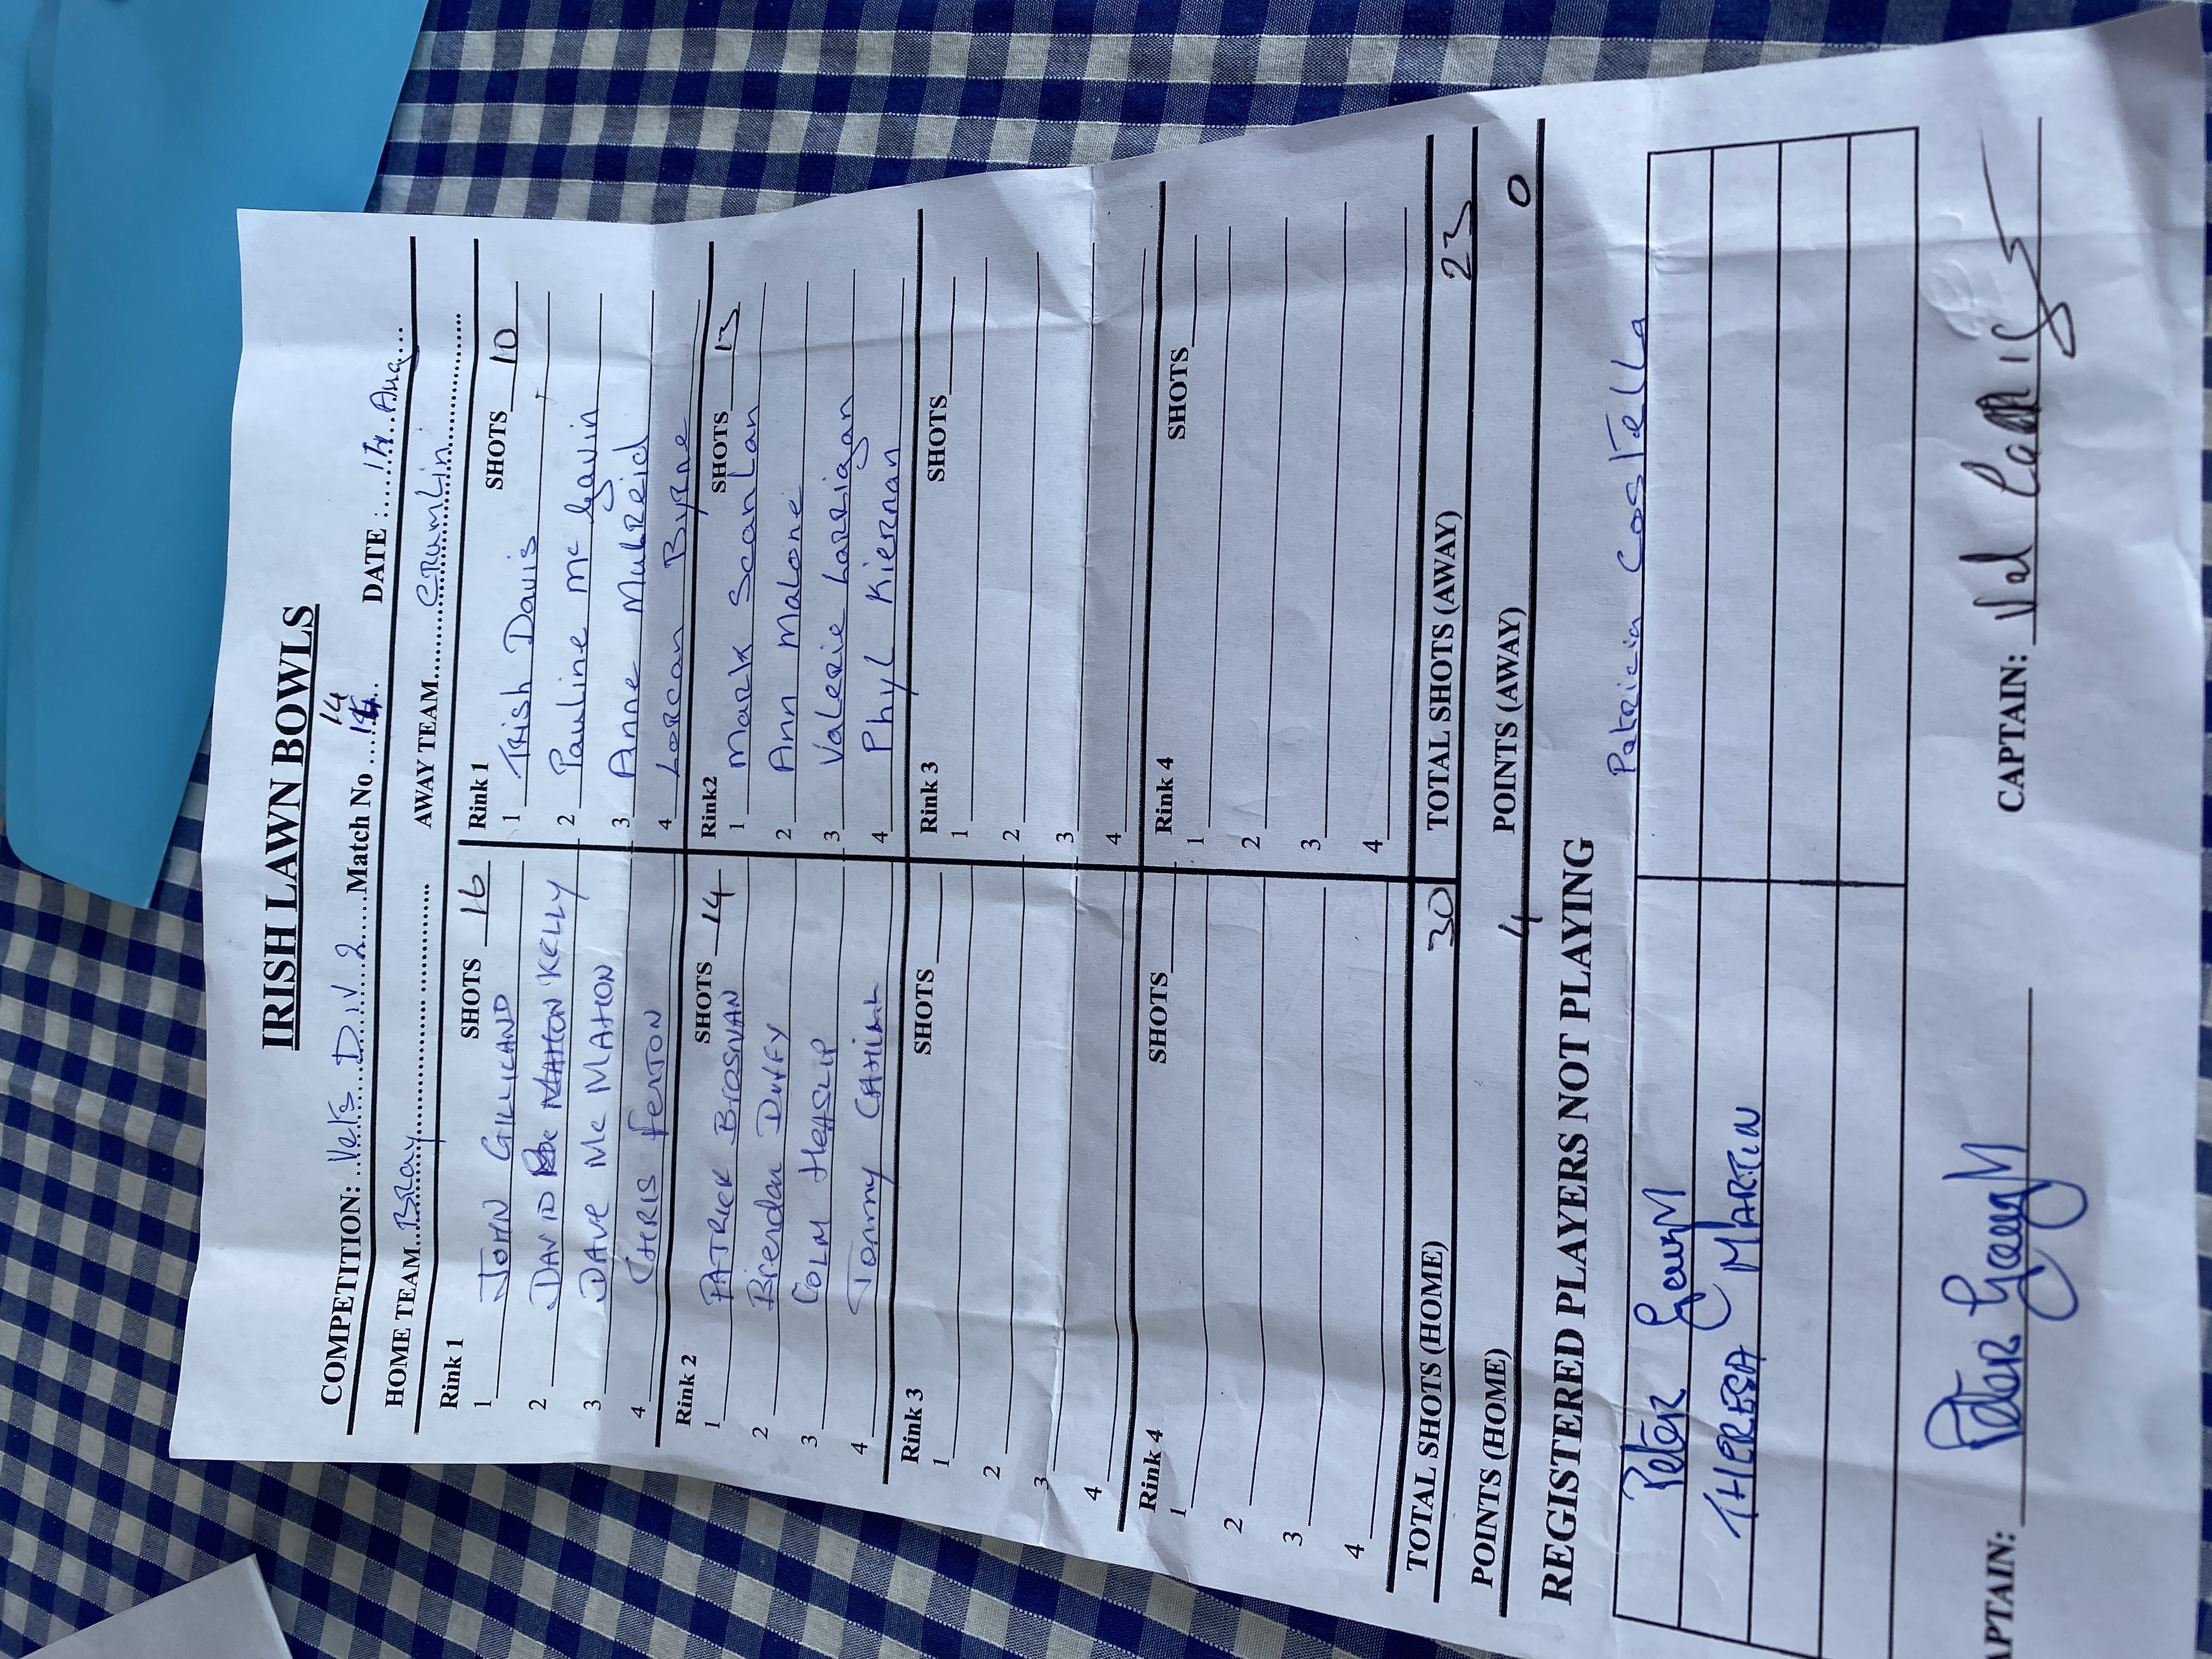 IRISH LAWN BOWLS
14
COMPETITION: Vets Div 2 Match No DATE: Aug
HOME TEAM Bray AWAY TEAM Crumlin
Rink 1 SHOTS 16 Rink 1 SHOTS 10
1 JOHN GILLILAND 1 Trish Davis
2 DAVID KELLY 2 Pauline Mc Gavin
3 DAVE Mc MAHON 3 Anne Mulreid
4 CHRIS FENTON 4 Lorcan Byrne
Rink 2 SHOTS 14 Rink2 SHOTS 13
1 PATRICK BROSNAN 1 Mark Scanlan
2 Brendan Duffy 2 Ann Malone
3 COLM HEASLIP 3 Valerie Larrigan
4 Tommy CAHILL 4 Phyl Kiernan
Rink 3 SHOTS Rink 3 SHOTS
1 1
2 2
3 3
4 4
Rink 4 SHOTS Rink 4 SHOTS
1 1
2 2
3 3
4 4
TOTAL SHOTS (HOME) 30 TOTAL SHOTS (AWAY) 23
POINTS (HOME) 4 POINTS (AWAY) 0
REGISTERED PLAYERS NOT PLAYING
PETER Patricia Costella
THERESA MARTIN
APTAIN: Peter CAPTAIN: Val